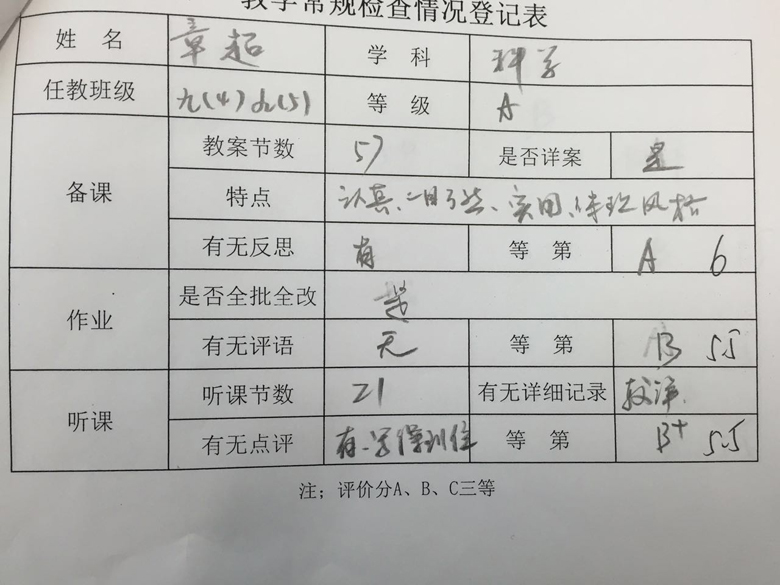 教学常规检查情况登记表
姓 名 章超 学 科 科学
任教班级 九(4) 九(5) 等 级 A
备课 教案节数 57 是否详案 是
特点 认真、一目了然、实用、体现风格
有无反思 有 等 第 A 6
作业 是否全批全改 是
有无评语 无 等 第 B 5.5
听课 听课节数 21 有无详细记录 较详
有无点评 有、写得到位 等 第 B+ 5.5
注；评价分A、B、C三等